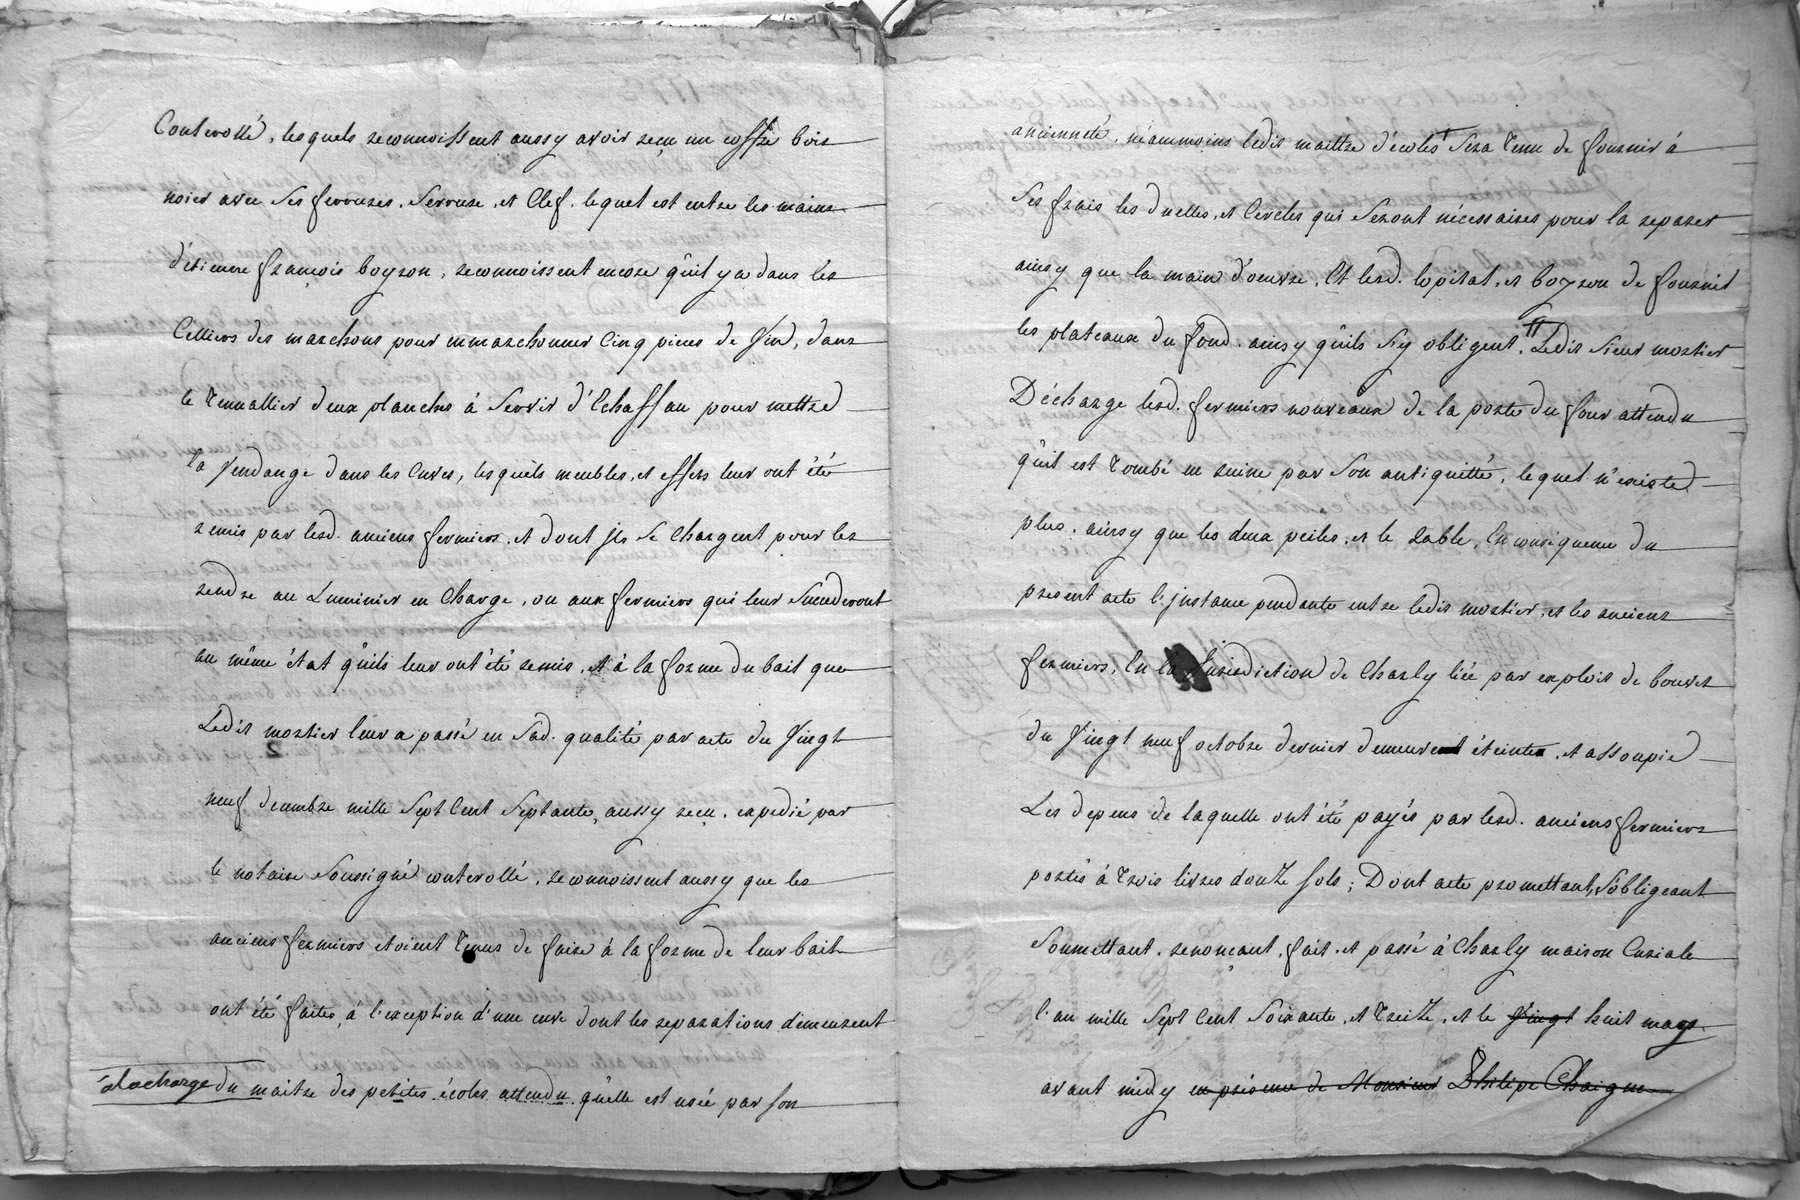 Controllé, lesquels reconnoissent aussy avoir reçu un coffre bois
noier avec ses ferrures, serrure, et clef, lequel est entre les mains
d'étienne françois boyron, reconnoissent encore qu'il y a dans les
Celliers des marchons pour mmarchonner cinq pieces de vin, dans
le tenallier deux planches à servir d'Echaffau pour mettre
la vendange dans les cuves, lesquels meubles, et effets leur ont été
remis par lesd. anciens fermiers, et dont jls se chargent pour les
rendre au Luminier en charge, ou aux fermiers qui leur succederont
au même état qu'ils leur ont été remis, et à la forme du bail que
Ledit mortier leur a passé en sad. qualité par acte du vingt
neuf decembre mille sept cent septante, aussy reçu, expedié par
le notaire soussigné controllé, reconnoissent aussy que les
anciens fermiers etoient tenus de faire à la forme de leur bail
ont été faites, à l'exception d'une cuve dont les reparations demeurent
à la charge du maitre des petites écoles attendu qu'elle est usée par son
ancienneté, néammoins ledit maittre d'écoles sera tenu de fournir à
ses frais les duelles, et cercles qui seront nécessaires pour la reparer
ainsy que la main d'oeuvre, Et lesd. lopital, et boyron de fournir
les plateaux du fond, ainsy qu'ils s'y obligent, Ledit sieur mortier
Décharge lesd. fermiers nouveaux de la porte du four attendu
qu'il est tombé en ruine par son antiquitté, lequel n'existe
plus, ainsy que les deux peiles, et le Rable, En consequence du
present acte l'jnstance pendante entre ledit mortier, et les anciens
fermiers, En la Jurisdiction de Charly liée par exploit de bouvet
du vingt neuf octobre dernier demeure éteinte, et assoupie
Les depens de laquelle ont été payés par lesd. anciens fermiers
portés à trois livres douze sols; Dont acte promettant, s'obligeant
soumettant, renoncant, fait, et passé à Charly maison Curiale
l'an mille sept cent soixante, et treize, et le vingt huit may
avant midy en présence de Monsieur Philipe Chaigne